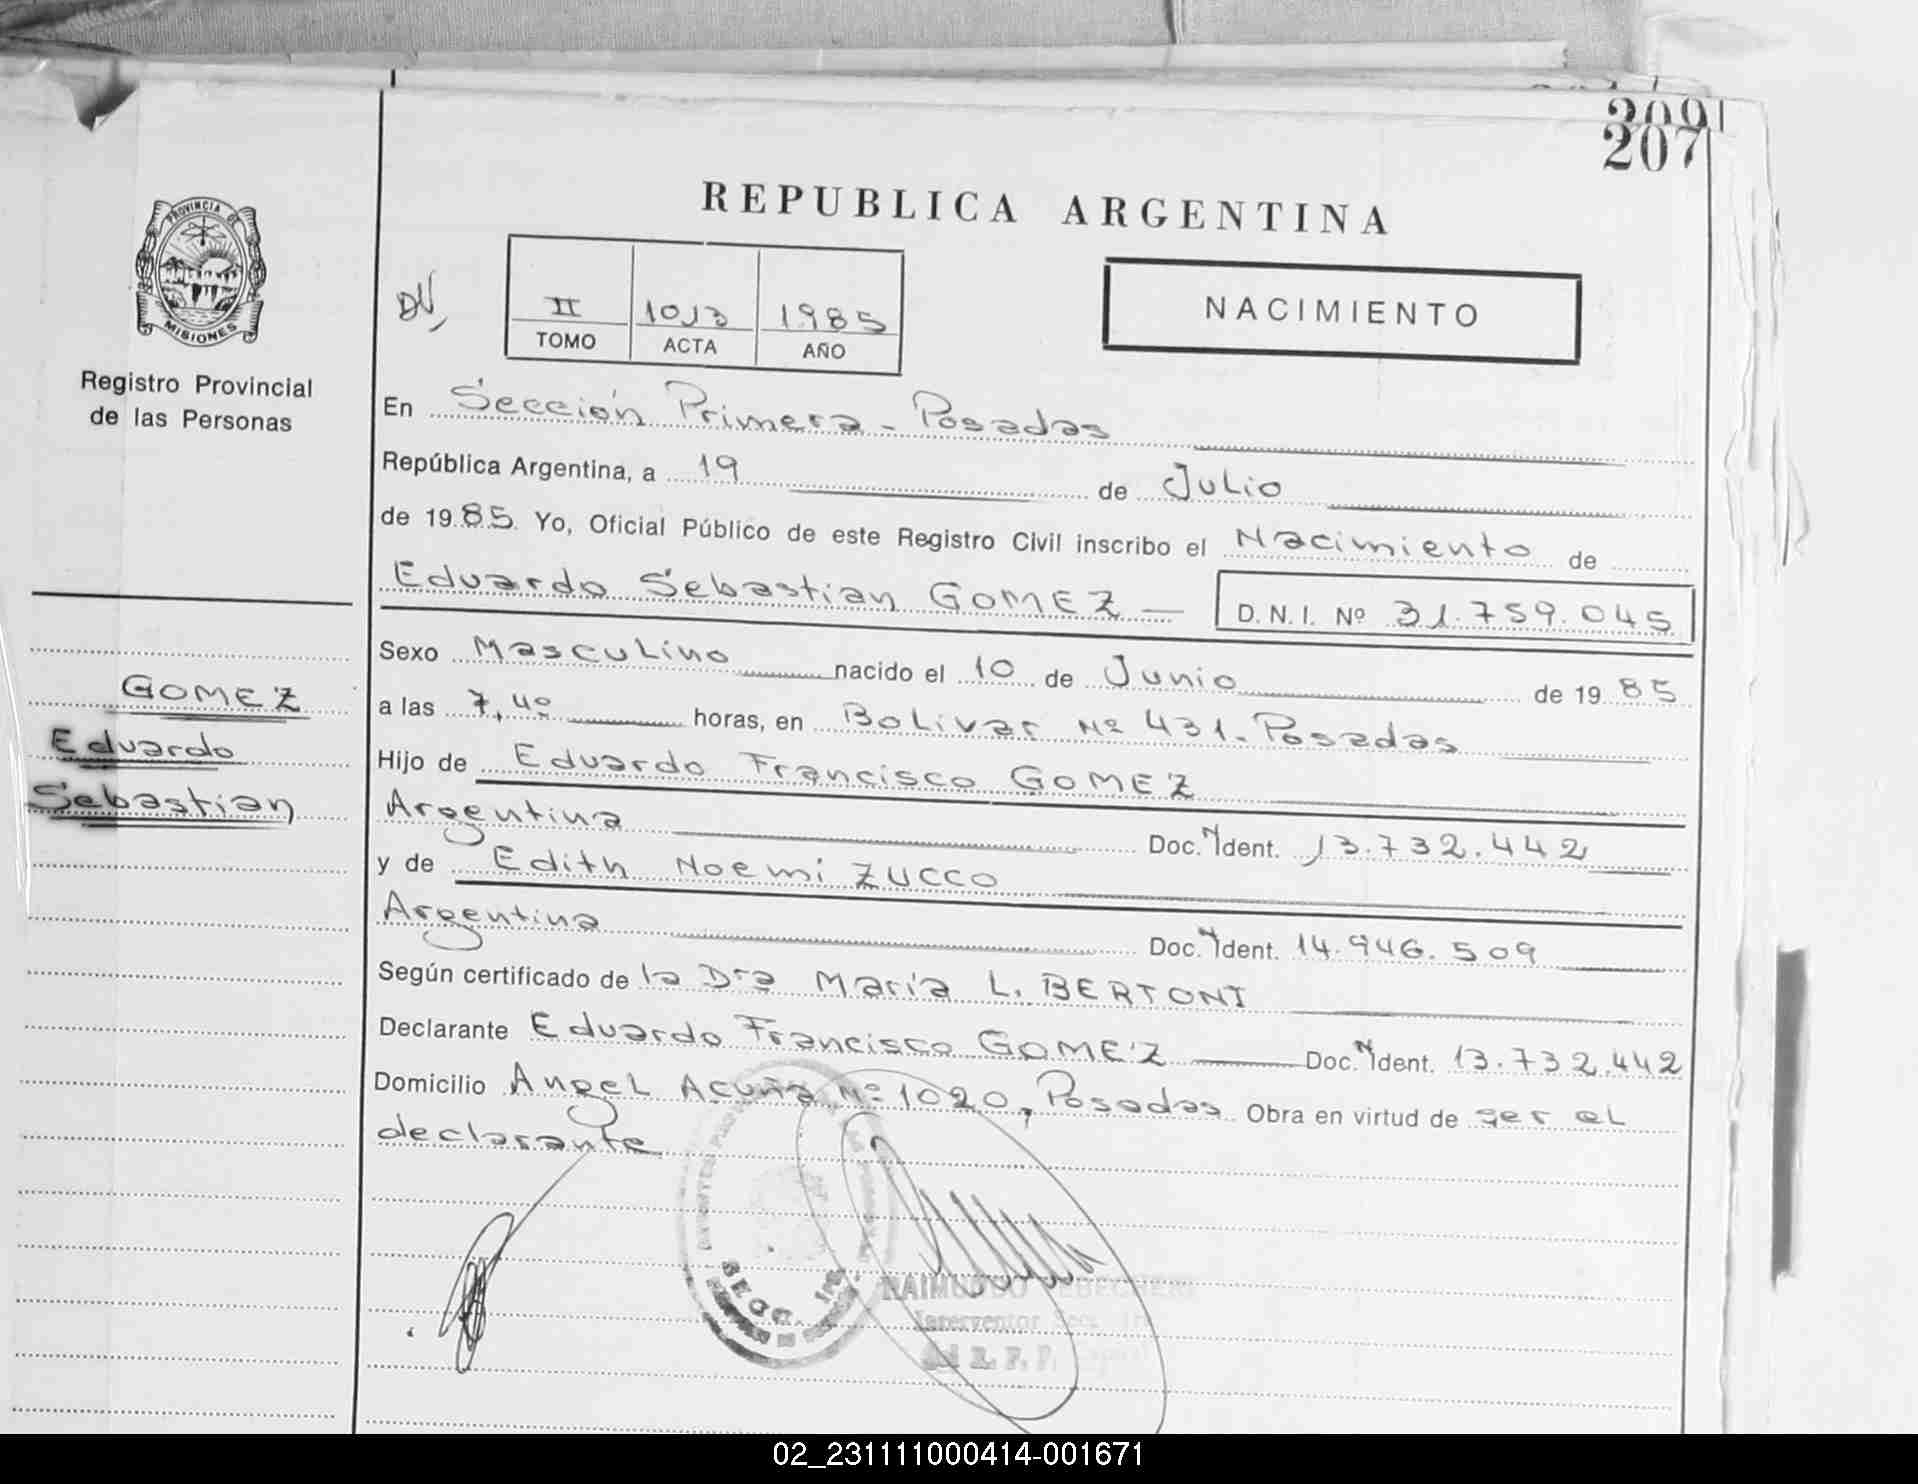 209
207
REPUBLICA ARGENTINA
PROVINCIA DE
MISIONES
Registro Provincial
de las Personas
II 1013 1985
TOMO ACTA AÑO
NACIMIENTO
En Sección Primera - Posadas
República Argentina, a 19 de Julio
de 1985. Yo, Oficial Público de este Registro Civil inscribo el Nacimiento de
Eduardo Sebastian GOMEZ — D.N.I. Nº 31.759.045
Sexo Masculino nacido el 10 de Junio de 1985
a las 7,40 horas, en Bolivar Nº 431. Posadas
Hijo de Eduardo Francisco GOMEZ
Argentina Doc. N Ident. 13.732.442
y de Edith Noemi ZUCCO
Argentina Doc. N Ident. 14.946.509
Según certificado de la Dra Maria L. BERTONI
Declarante Eduardo Francisco GOMEZ — Doc. N Ident. 13.732.442
Domicilio Angel Acuña Nº 1020, Posadas Obra en virtud de ser el
declarante
GOMEZ
Eduardo
Sebastian
SECC. 1ra
RAIMUNDO
Interventor Secc. 1ra
del R. P. P. Capital
02_231111000414-001671